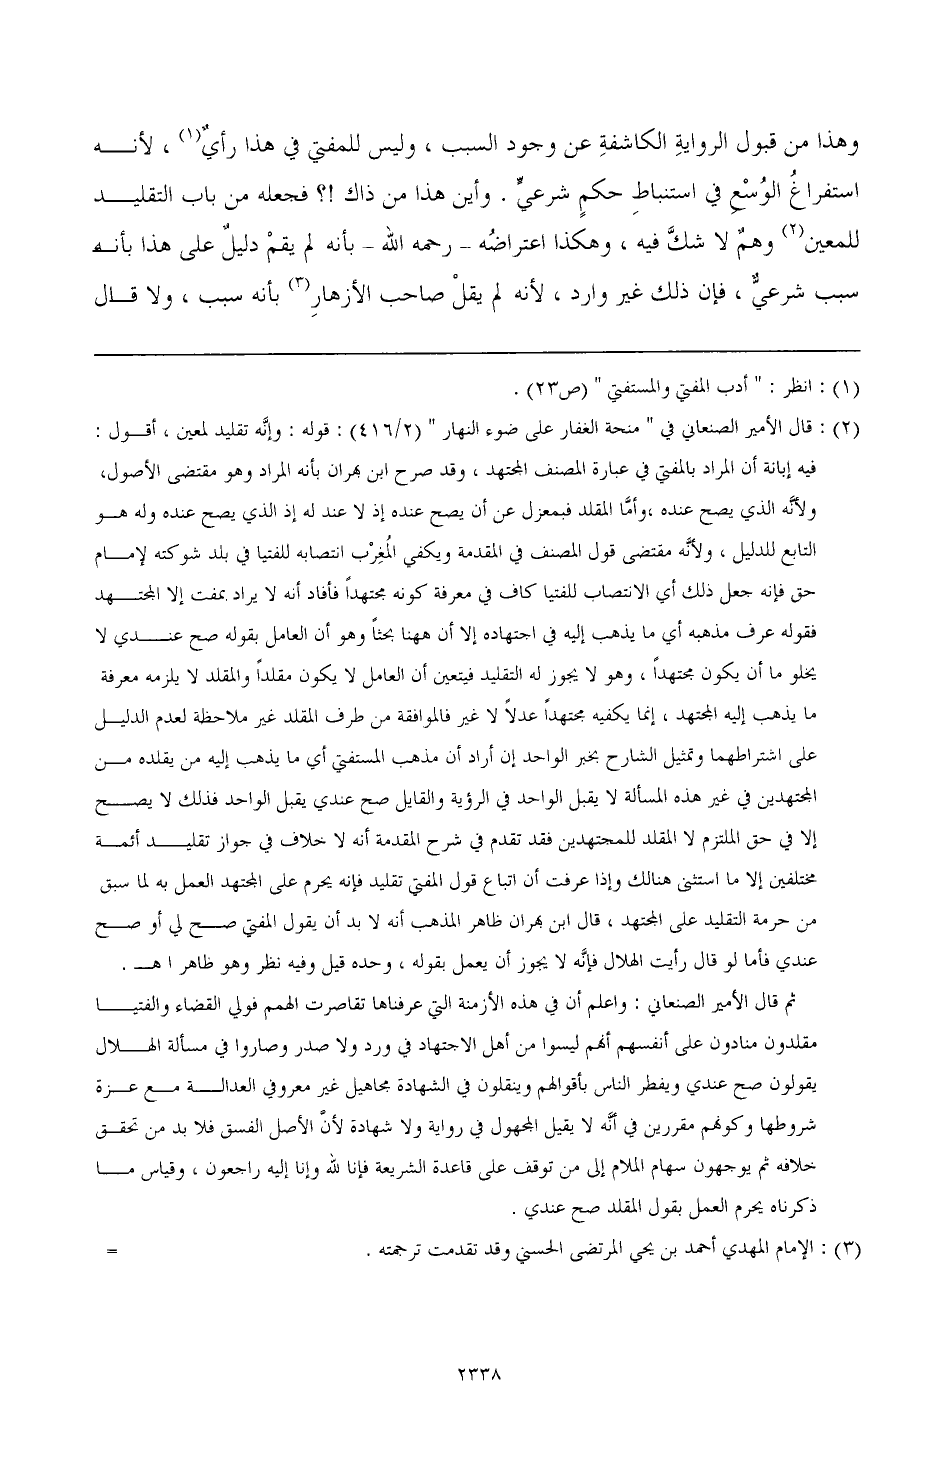 وهذا من قبول الروايةِ الكاشفةِ عن وجود السبب ، وليس للمفتي في هذا رأيٌ(١) ، لأنه
استفراغُ الوُسْعِ في استنباطِ حكمٍ شرعيٍّ . وأين هذا من ذاك !؟ فجعله من باب التقليد
للمعين(٢) وهمٌ لا شكَّ فيه ، وهكذا اعتراضُه – رحمه الله – بأنه لم يقمْ دليلٌ على هذا بأنه
سبب شرعيٌّ ، فإن ذلك غير وارد ، لأنه لم يقلْ صاحب الأزهارِ(٣) بأنه سبب ، ولا قال
(١) : انظر : " أدب المفتي والمستفتي " (ص٢٣) .
(٢) : قال الأمير الصنعاني في " منحة الغفار على ضوء النهار " (٤١٦/٢) : قوله : وإنَّه تقليد لمعين ، أقول :
فيه إبانة أن المراد بالمفتي في عبارة المصنف المجتهد ، وقد صرح ابن بهران بأنه المراد وهو مقتضى الأصول،
ولأنَّه الذي يصح عنده ،وأمَّا المقلد فبمعزل عن أن يصح عنده إذ لا عند له إذ الذي يصح عنده وله هو
التابع للدليل ، ولأنَّه مقتضى قول المصنف في المقدمة ويكفي المُغِرْب انتصابه للفتيا في بلد شوكته لإمام
حق فإنه جعل ذلك أي الانتصاب للفتيا كاف في معرفة كونه مجتهداً فأفاد أنه لا يراد بمفت إلا المجتهد
فقوله عرف مذهبه أي ما يذهب إليه في اجتهاده إلا أن ههنا بحثاً وهو أن العامل بقوله صح عندي لا
يخلو ما أن يكون مجتهداً ، وهو لا يجوز له التقليد فيتعين أن العامل لا يكون مقلداً والمقلد لا يلزمه معرفة
ما يذهب إليه المجتهد ، إنما يكفيه مجتهداً عدلاً لا غير فالموافقة من طرف المقلد غير ملاحظة لعدم الدليل
على اشتراطهما وتمثيل الشارح بخبر الواحد إن أراد أن مذهب المستفتي أي ما يذهب إليه من يقلده من
المجتهدين في غير هذه المسألة لا يقبل الواحد في الرؤية والقايل صح عندي يقبل الواحد فذلك لا يصح
إلا في حق الملتزم لا المقلد للمجتهدين فقد تقدم في شرح المقدمة أنه لا خلاف في جواز تقليد أئمة
مختلفين إلا ما استثنى هنالك وإذا عرفت أن اتباع قول المفتي تقليد فإنه يحرم على المجتهد العمل به لما سبق
من حرمة التقليد على المجتهد ، قال ابن بهران ظاهر المذهب أنه لا بد أن يقول المفتي صح لي أو صح
عندي فأما لو قال رأيت الهلال فإنَّه لا يجوز أن يعمل بقوله ، وحده قيل وفيه نظر وهو ظاهر ا هـ .
ثم قال الأمير الصنعاني : واعلم أن في هذه الأزمنة التي عرفناها تقاصرت الهمم فولي القضاء والفتيا
مقلدون منادون على أنفسهم أنهم ليسوا من أهل الاجتهاد في ورد ولا صدر وصاروا في مسألة الهلال
يقولون صح عندي ويفطر الناس بأقوالهم وينقلون في الشهادة مجاهيل غير معروفي العدالة مع عزة
شروطها وكونهم مقررين في أنَّه لا يقبل المجهول في رواية ولا شهادة لأنَّ الأصل الفسق فلا بد من تحقق
خلافه ثم يوجهون سهام الملام إلى من توقف على قاعدة الشريعة فإنا لله وإنا إليه راجعون ، وقياس ما
ذكرناه يحرم العمل بقول المقلد صح عندي .
(٣) : الإمام المهدي أحمد بن يحي المرتضى الحسني وقد تقدمت ترجمته . =
٢٣٣٨